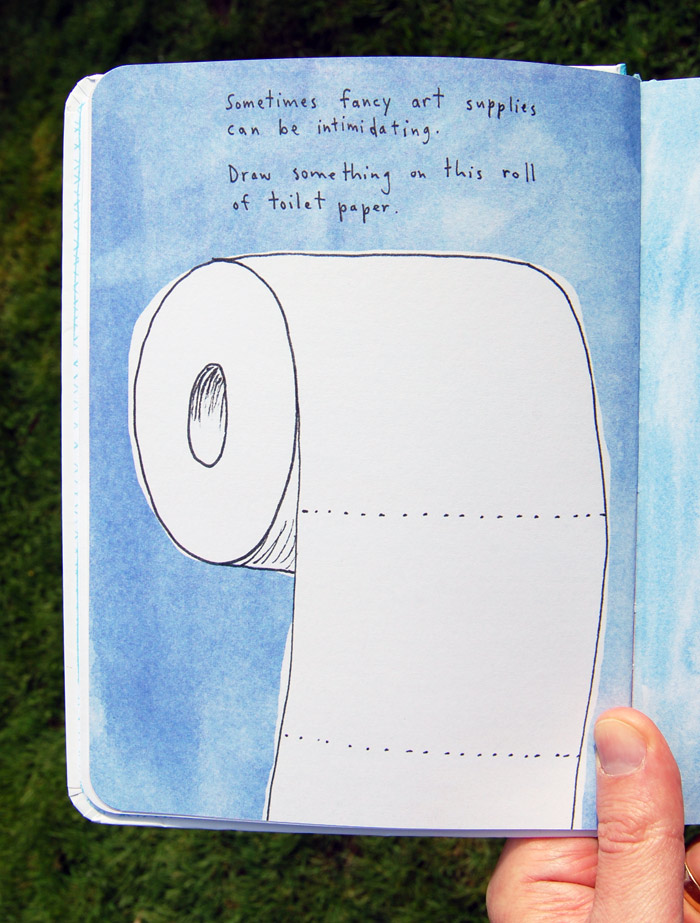 Sometimes fancy art supplies
can be intimidating.
Draw something on this roll
of toilet paper.